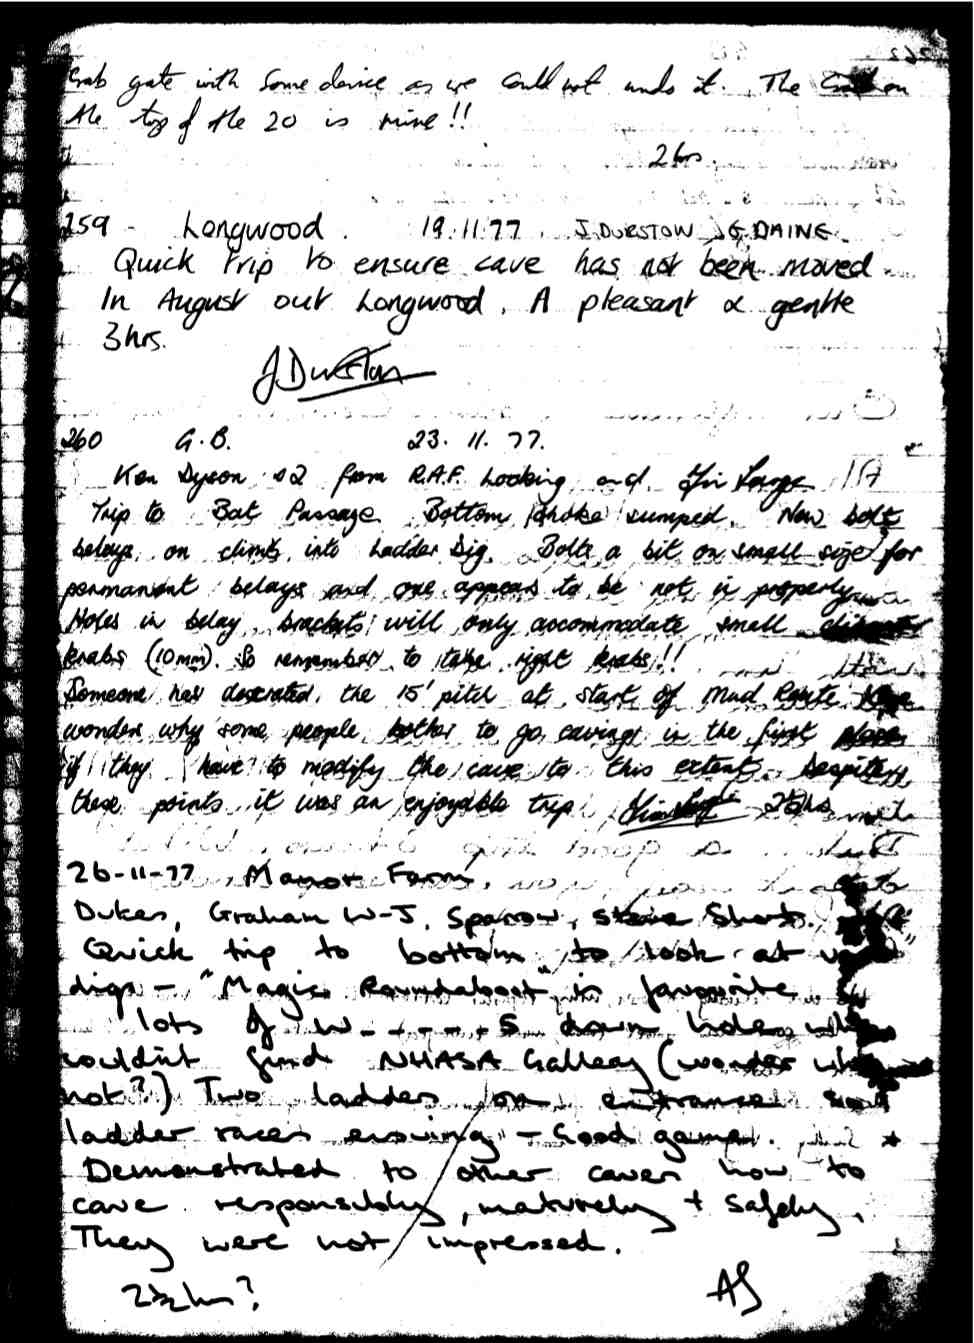 Crab gate with some device as we could not undo it. The on
the top of the 20 is mine!!
2 hrs.
259 - Longwood. 19.11.77. J. DURSTON
Quick trip to ensure cave has not been moved
In August out Longwood. A pleasant & gentle
3hrs.
J Durston
260 G.B. 23. 11. 77.
Ken Dyson + 2 from R.A.F. Locking and Jim Large
Trip to Bat Passage. Bottom choke sumped. New bolt
belays on climbs into Ladder Dig. Bolts a bit on small size for
permanent belays and one appears to be not in properly
Holes in belay brackets will only accommodate small
krabs (10mm). So remember to take right krabs!!
Someone has desecrated the 15' pitch at start of Mud Route
wonder why some people bother to go caving in the first place
if they have to modify the cave to this extent. Despite
these points it was an enjoyable trip.
26-11-77 Manor Farm.
Dukes, Graham W-J, Sparrow, Steve Short.
Quick trip to bottom to look at
digs - "Magic Roundabout" is favourite
lots of W-----S down hole who
couldn't find NHASA Gallery (wonder why
not?) Two ladders on entrance and
ladder races ensuing - Good game. *
Demonstrated to other caver how to
cave responsibly, maturely + safely.
They were not impressed.
2½ hrs? AS